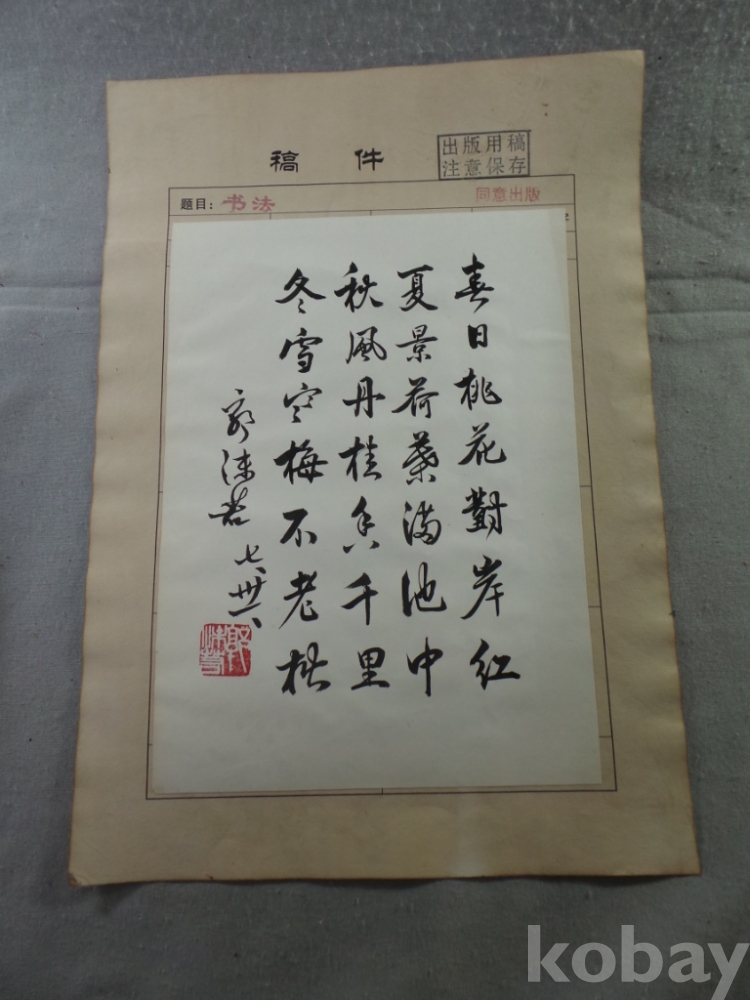 稿件
出版用稿
注意保存
题目：书法
同意出版
春日桃花對岸红
夏景荷葉滿池中
秋風丹桂香千里
冬雪寒梅不老松
郭沫若 七、卅、
郭沫若
kobay